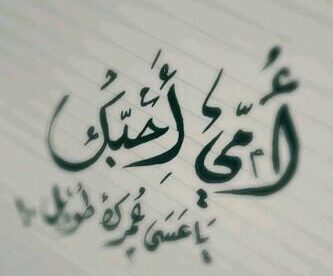 أُمّي أُحبّك
يَا عَسَى عُمرك طُويل يا